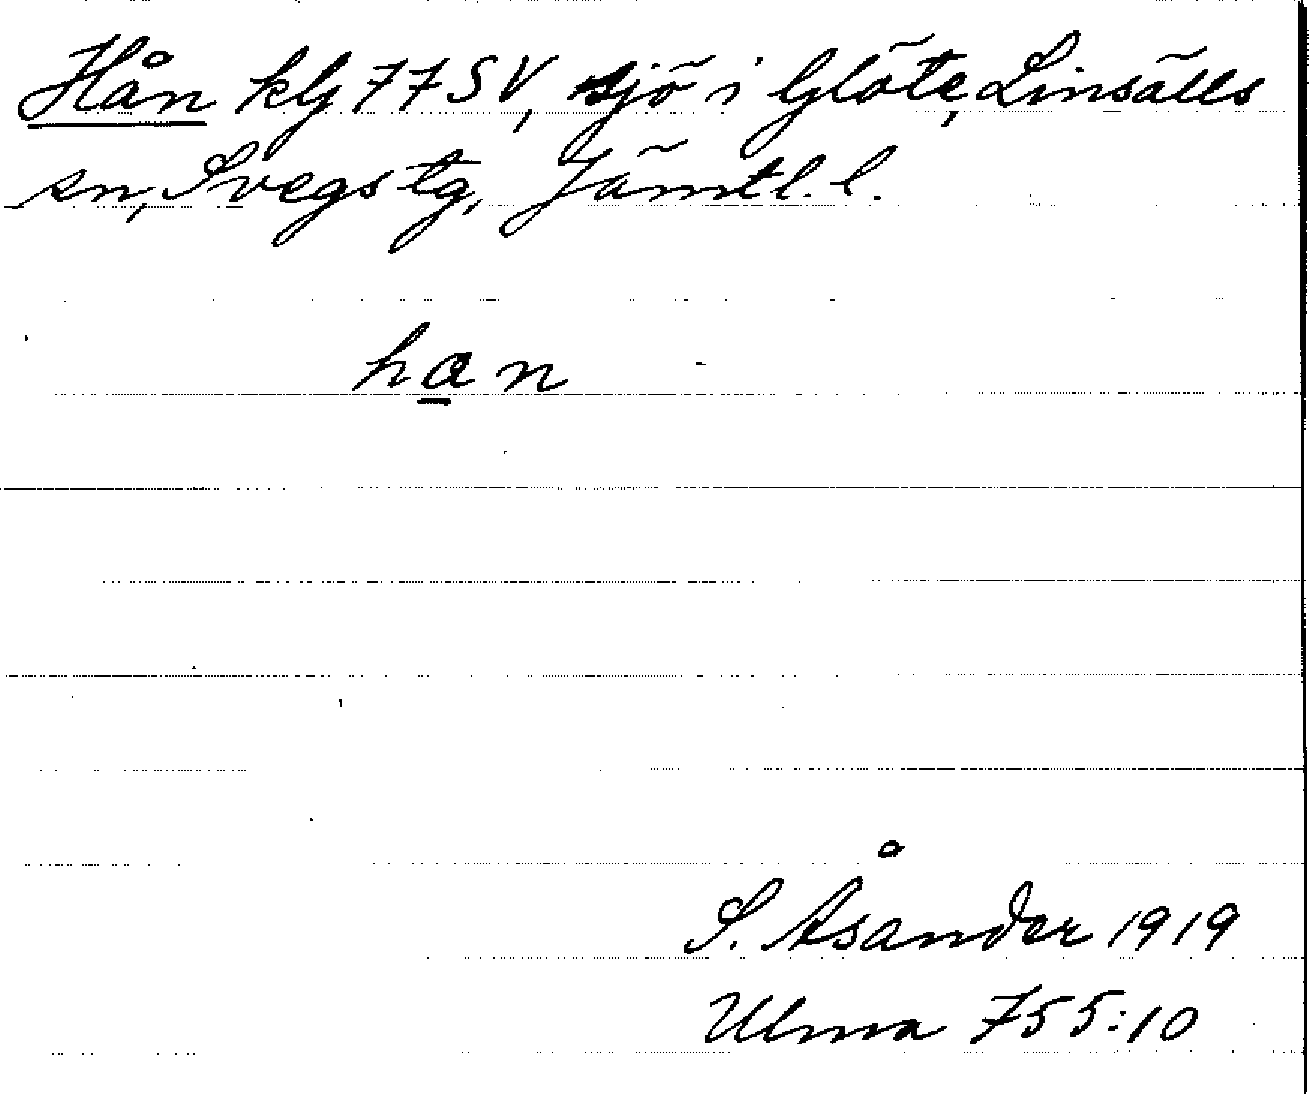 Hån klj 77SV, sjö i Glöte, Linsälls
sn, Svegs tg, Jämtl. l.
han
S. Åsander 1919
Ulma 755:10